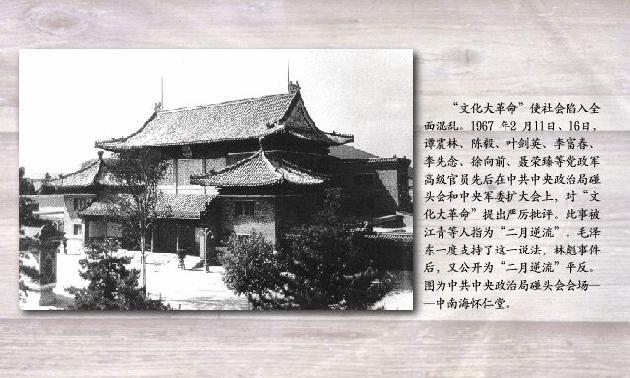 “文化大革命”使社会陷入全
面混乱。1967 年2 月11日、16日,
谭震林、陈毅、叶剑英、李富春、
李先念、徐向前、聂荣臻等党政军
高级官员先后在中共中央政治局碰
头会和中央军委扩大会上，对“文
化大革命”提出严厉批评。此事被
江青等人指为“二月逆流”．毛泽
东一度支持了这一说法，林彪事件
后，又公开为“二月逆流”平反。
图为中共中央政治局碰头会会场—
—中南海怀仁堂。